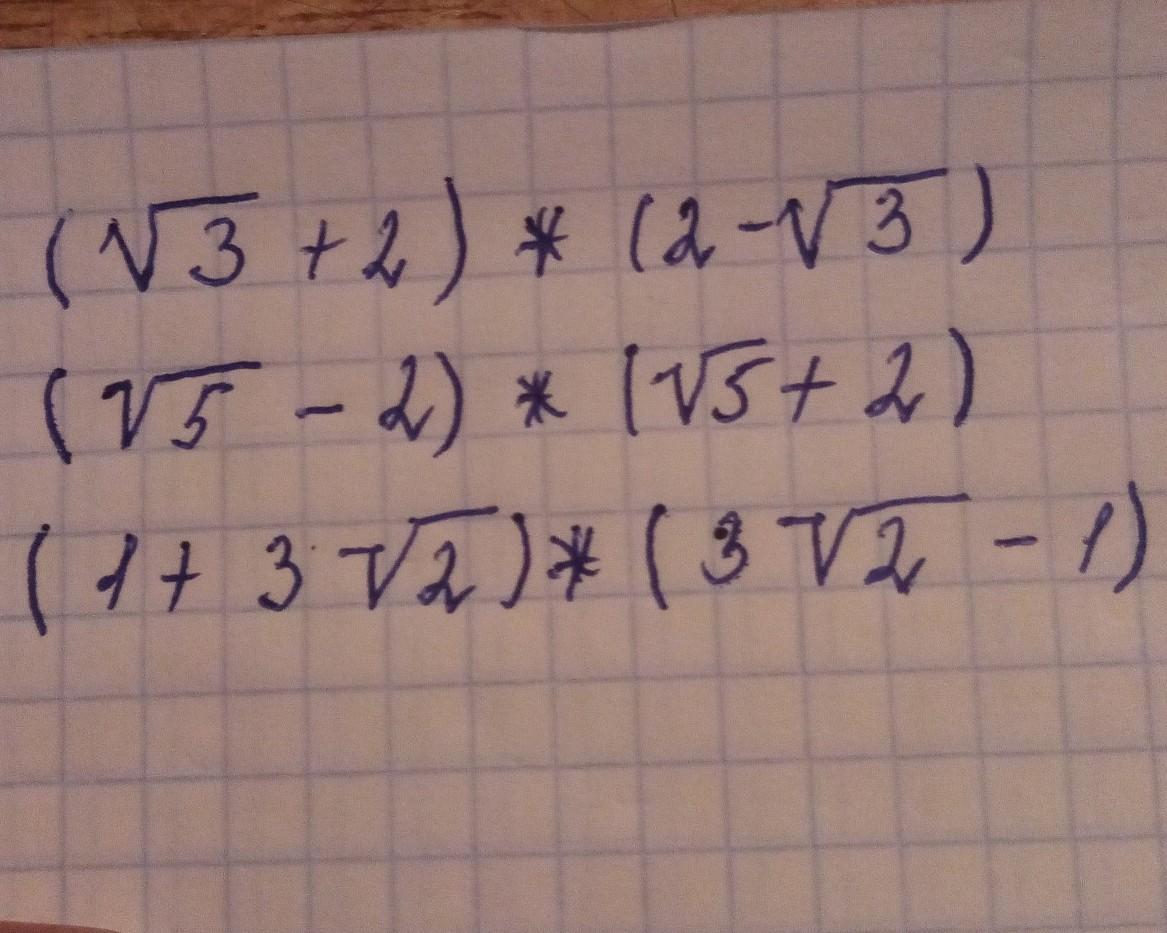 (√3 + 2) * (2 - √3)
(√5 - 2) * (√5 + 2)
(1 + 3√2) * (3√2 - 1)